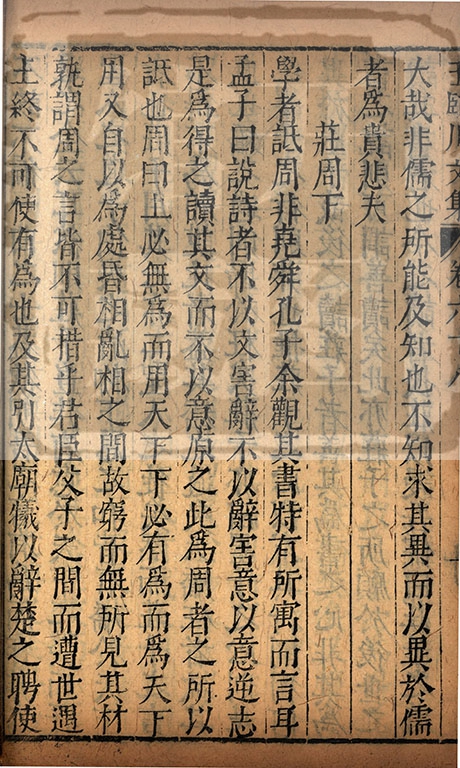 王臨川文集 卷六十八
大哉非儒之所能及知也不知求其異而以異於儒
者為貴悲夫
莊周下
學者詆周非堯舜孔子余觀其書特有所寓而言耳
孟子曰說詩者不以文害辭不以辭害意以意逆志
是為得之讀其文而不以意原之此為周者之所以
詆也周曰上必無為而用天下下必有為而為天下
用又自以為處昏相亂相之間故窮而無所見其材
孰謂周之言皆不可措乎君臣父子之間而遭世遇
主終不可使有為也及其引太廟犧以辭楚之聘使